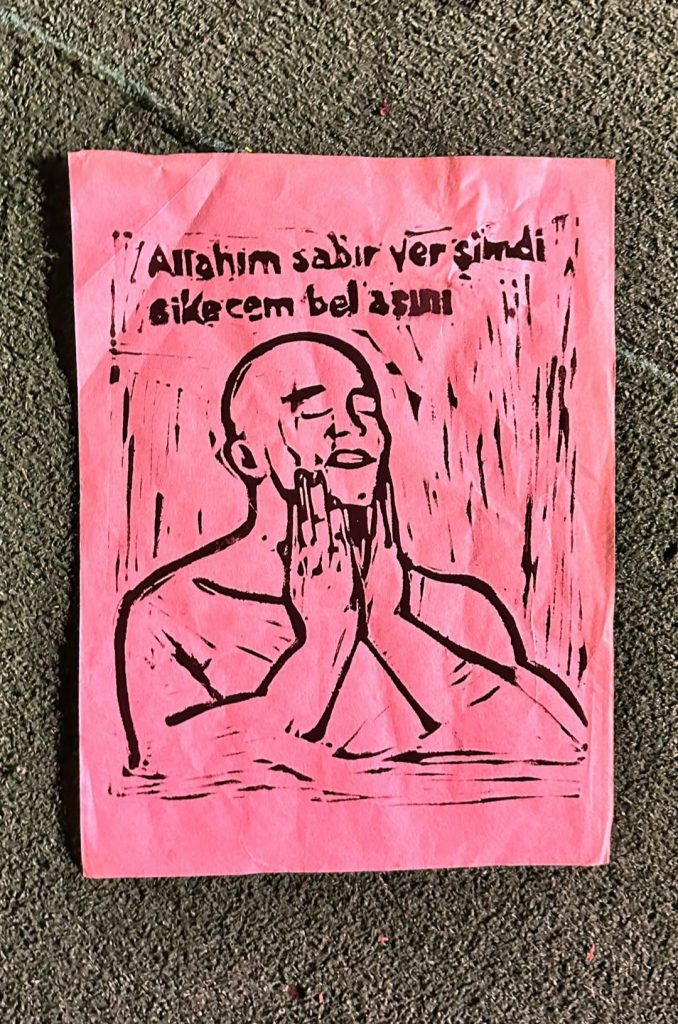 Allahım sabır ver şimdi
sikecem belasını